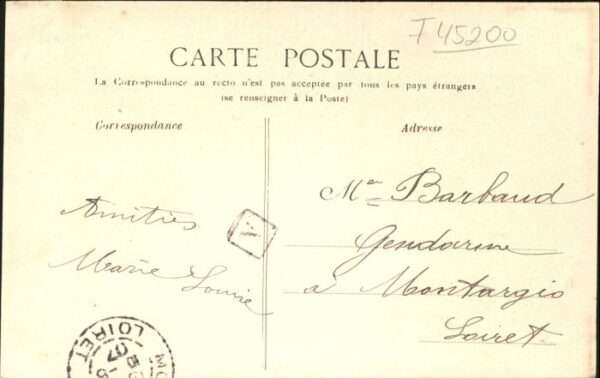 F 45200
CARTE POSTALE
La Correspondance au recto n'est pas acceptée par tous les pays étrangers
(se renseigner à la Poste)
Correspondance
Amitiés
Marie Louise
Adresse
Mr Barbaud
Gendarme
à Montargis
Loiret
LOIRET
07